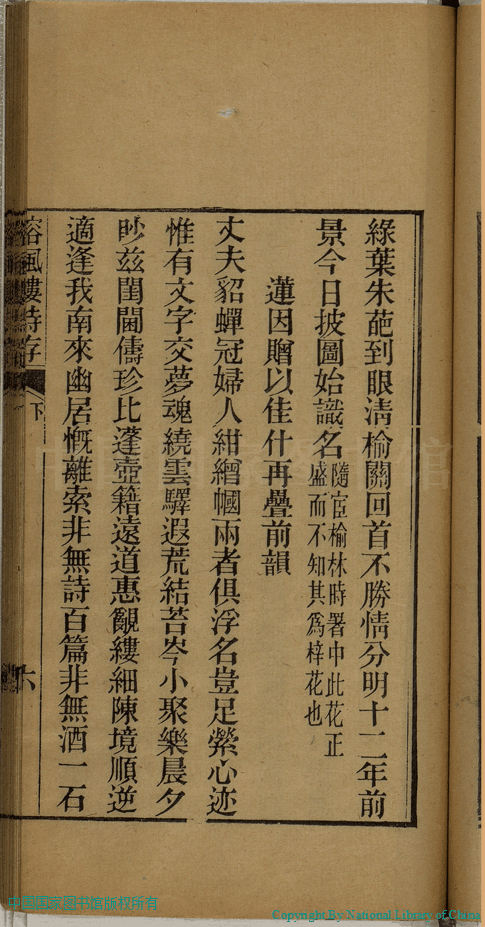 綠葉朱葩到眼淸榆關回首不勝情分明十二年前
景今日披圖始識名隨宦榆林時署中此花正
盛而不知其爲梓花也
蓮因贈以佳什再疊前韻
丈夫貂蟬冠婦人紺繒幗兩者俱浮名豈足縈心迹
惟有文字交夢魂繞雲驛遐荒結苔岑小聚樂晨夕
眇茲閨闥儔珍比蓬壺籍遠道惠覼縷細陳境順逆
適逢我南來幽居慨離索非無詩百篇非無酒一石
風樓詩存
下
六
中国国家图书馆版权所有
Copyright By National Library of China